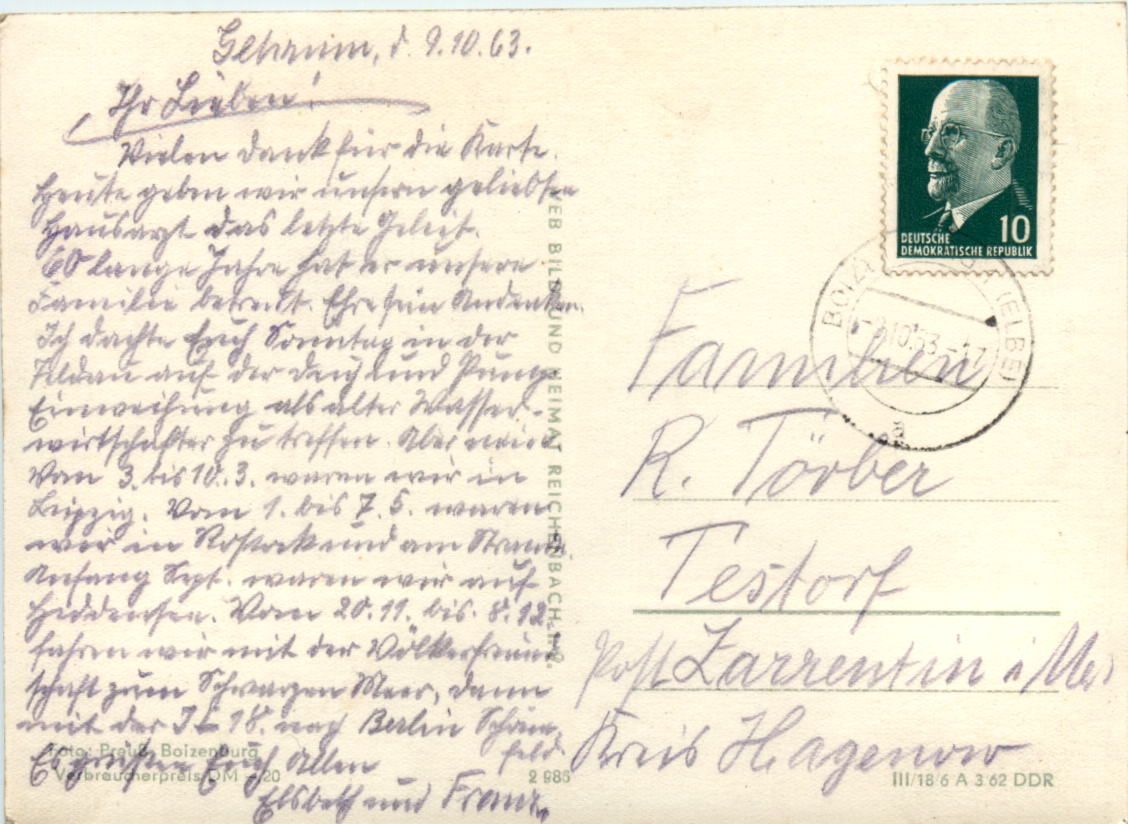 d. 9.10.63.
Ihr Lieben!
Vielen Dank für die Karte.
Heute geben wir unsern geliebten
Hausarzt das letzte Geleit.
60 lange Jahre hat er unsere
Familie betreut. Ehre sein Andenken.
Ich dachte Euch Sonntag in der
auf der und
Einweihung als alter Wasser-
wirtschafter zu treffen. Aber
Vom 3. bis 10.3. waren wir in
Leipzig. Vom 1. bis 7.5. waren
wir in Rostock und am Strand
Anfang Sept. waren wir auf
Hiddensee. Vom 20.11. bis 8.12.
fahren wir mit der Völkerfreund
schaft zum Schwarzen Meer, dann
mit der nach Berlin Schöne
feld.
Es grüssen Euch Allen
Elsbeth und Franz.
Foto: Preuß, Boizenburg
Verbraucherpreis DM -,20
2 985
VEB BILD UND HEIMAT REICHENBACH
10
DEUTSCHE
DEMOKRATISCHE REPUBLIK
BOIZENBURG (ELBE)
-9.10.63.-17
Familien
R. Törber
Testorf
Post Zarrentin i/Me
Kreis Hagenow
III/18 6 A 3 62 DDR